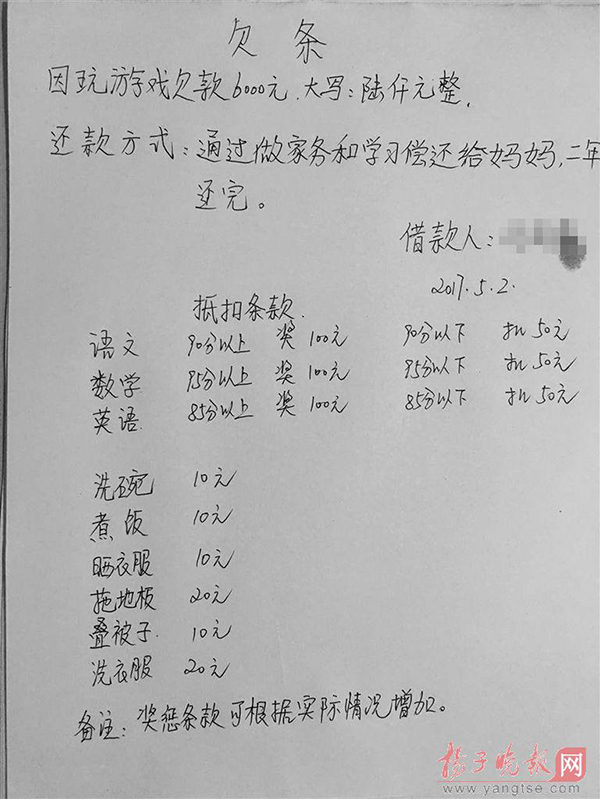 欠条
因玩游戏欠款6000元.大写:陆仟元整.
还款方式:通过做家务和学习偿还给妈妈,二年
还完。
借款人:
2017.5.2.
抵扣条款.
语文 90分以上 奖100元 90分以下 扣50元
数学 95分以上 奖100元 95分以下 扣50元
英语 85分以上 奖100元 85分以下 扣50元
洗碗 10元
煮饭 10元
晒衣服 10元
拖地板 20元
叠被子 10元
洗衣服 20元
备注:奖惩条款可根据实际情况增加。
扬子晚报网
www.yangtse.com